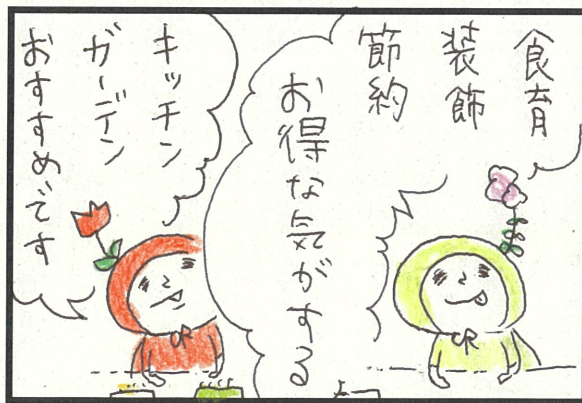 食育
装飾
節約
お得な気がする
キッチン
ガーデン
おすすめです